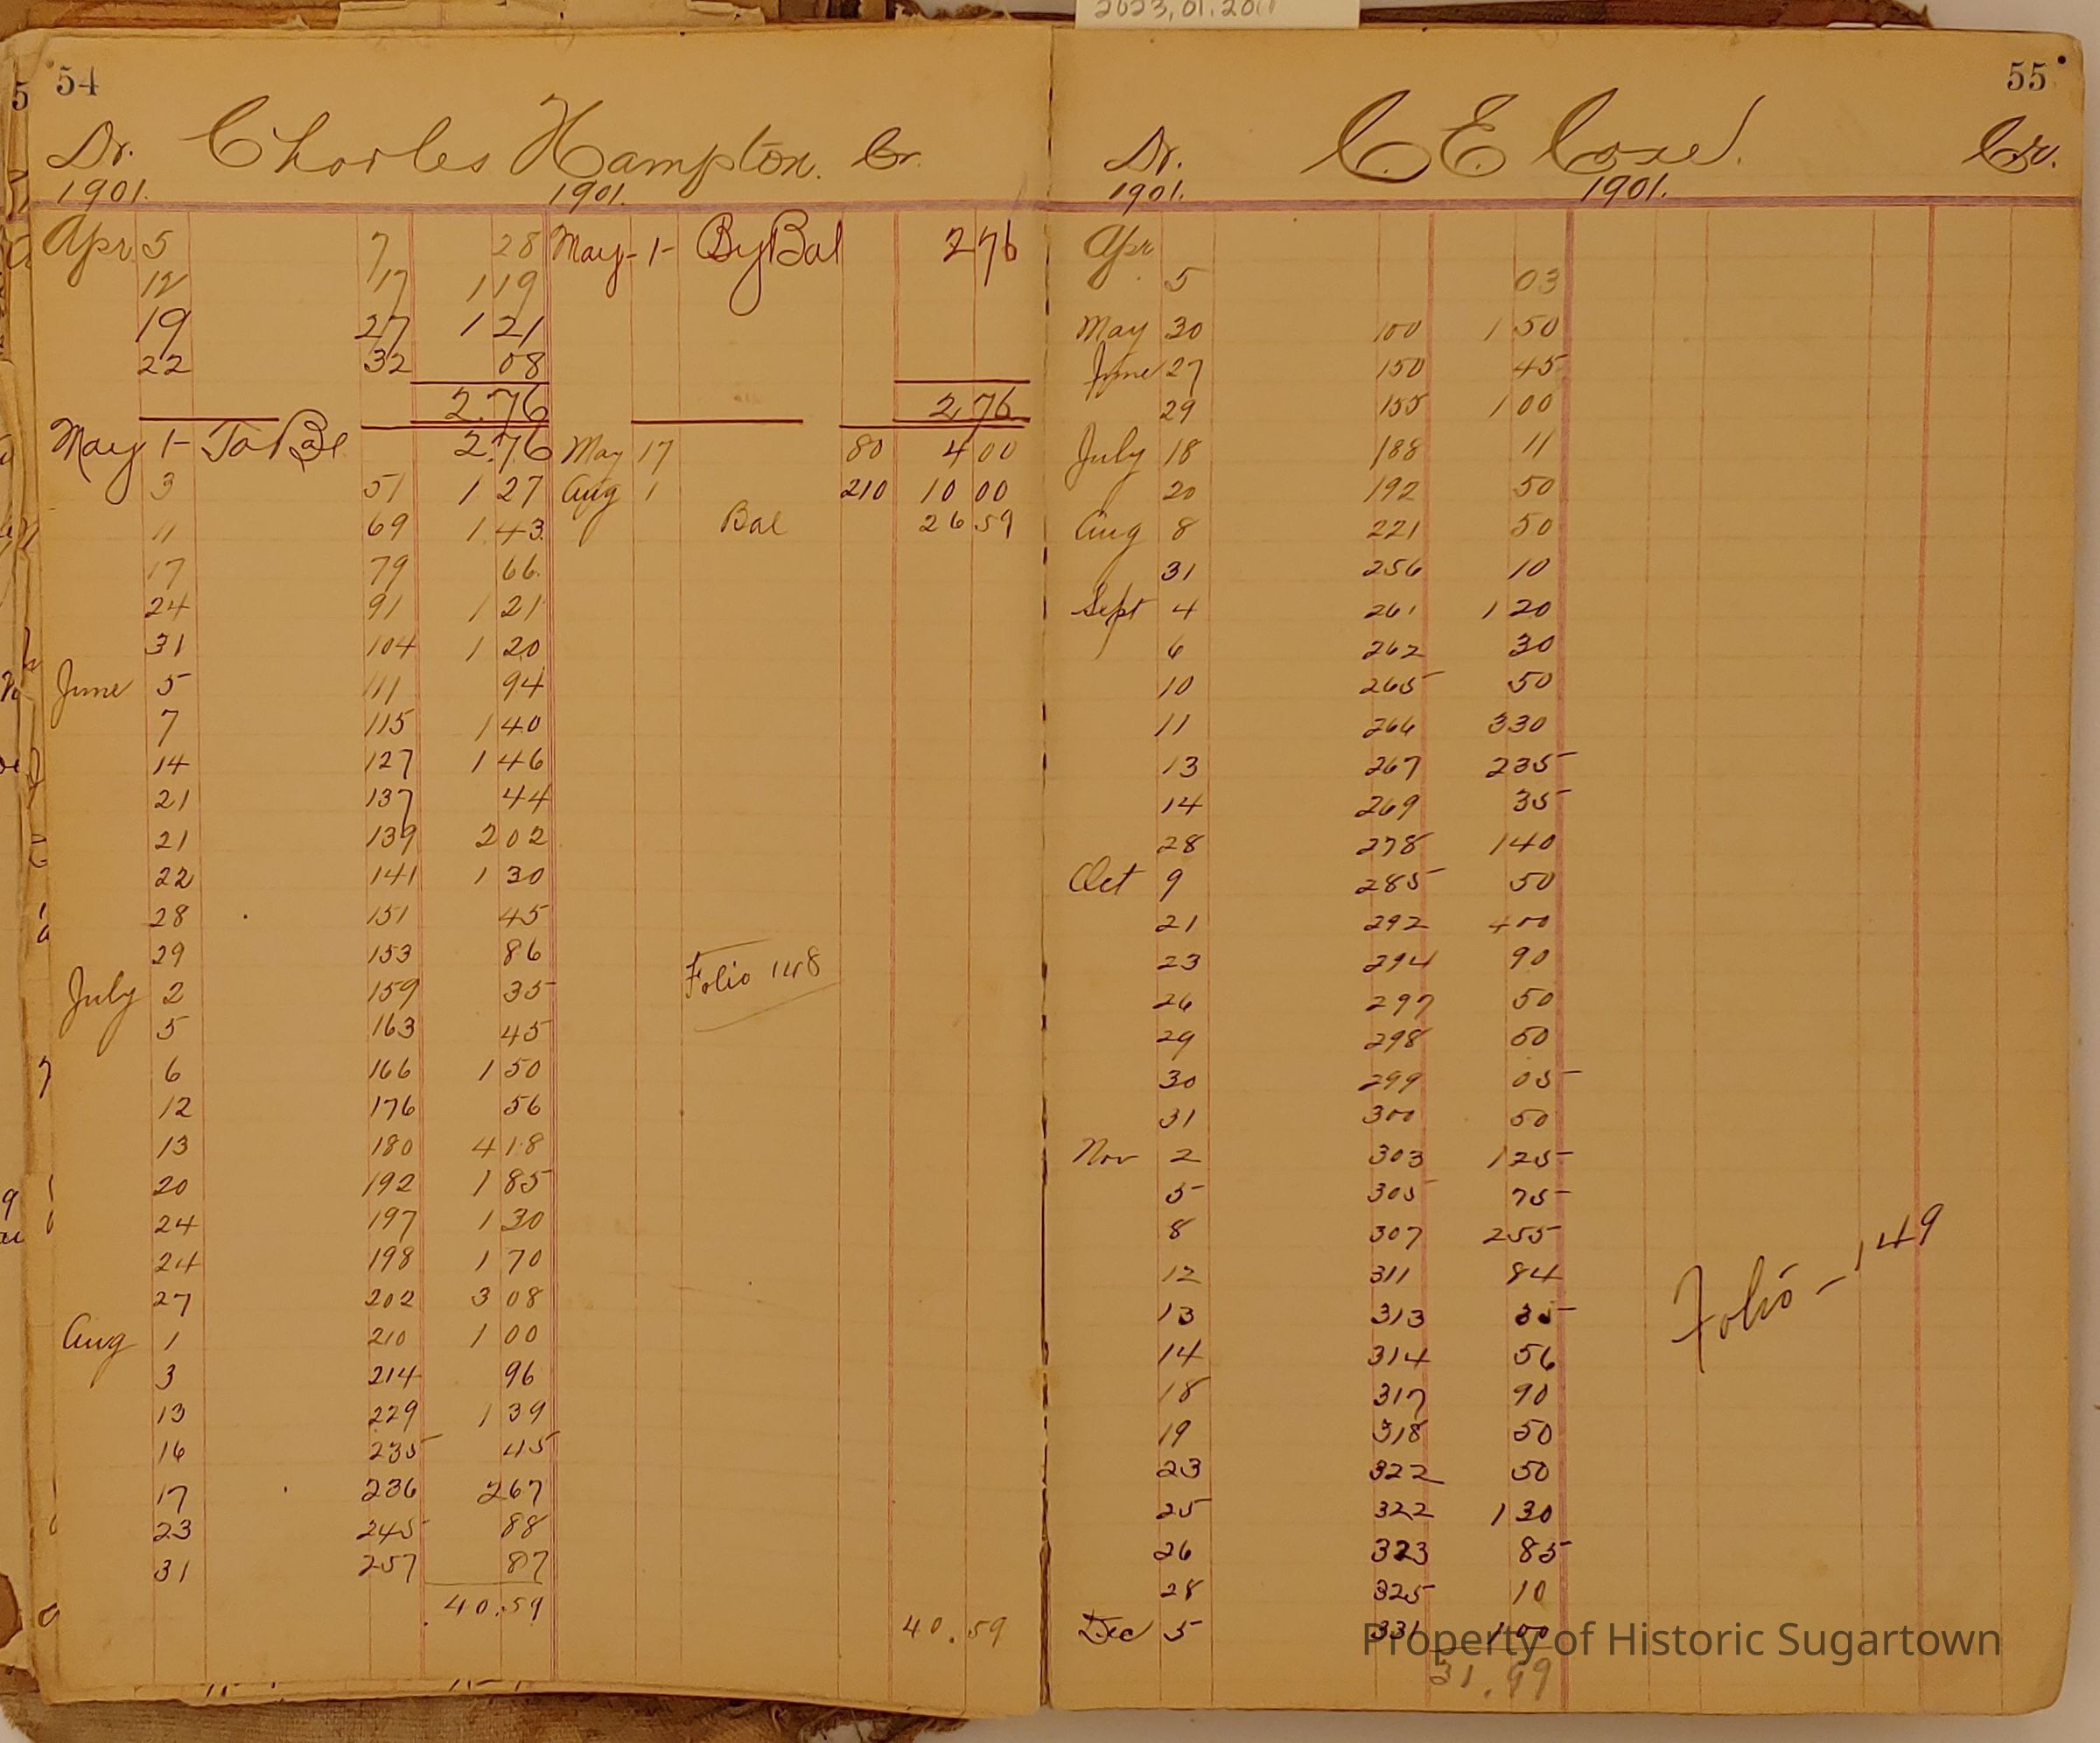 2023.01.20
54
Dr. Charles Hampton. Cr.
1901. 1901.
Apr. 5 7 28 May - 1 - By Bal 2 76
12 17 1 19
19 27 1 21
22 32 08
2.76 2,76
May 1 - To Bal 2.76 May 17 80 4 00
3 51 1 27 Aug 1 210 10 00
11 69 1 43 Bal 26 59
17 79 66
24 91 1 21
31 104 1 20
June 5 111 94
7 115 1 40
14 127 1 46
21 137 44
21 139 2 02
22 141 1 30
28 151 45
29 153 86
Folio 148
July 2 159 35
5 163 45
6 166 1 50
12 176 56
13 180 4 18
20 192 1 85
24 197 1 30
24 198 1 70
27 202 3 08
Aug 1 210 1 00
3 214 96
13 229 1 39
16 235 45
17 236 2 67
23 245 88
31 257 87
40.59 40.59
55
Dr. C. E. Coxe. Cr.
1901. 1901.
Apr
5 03
May 30 100 1 50
June 27 150 45
29 155 1 00
July 18 188 11
20 192 50
Aug 8 221 50
31 256 10
Sept 4 261 1 20
6 262 30
10 265 50
11 266 3 30
13 267 2 35
14 269 35
28 278 1 40
Oct 9 285 50
21 292 4 00
23 294 90
26 297 50
29 298 50
30 299 05
31 300 50
Nov 2 303 1 25
5 305 75
8 307 2 55
Folio - 149
12 311 84
13 313 35
14 314 56
18 317 90
19 318 50
23 322 50
25 322 1 30
26 323 85
28 325 10
Dec 5 331 1 00
31.99
Property of Historic Sugartown